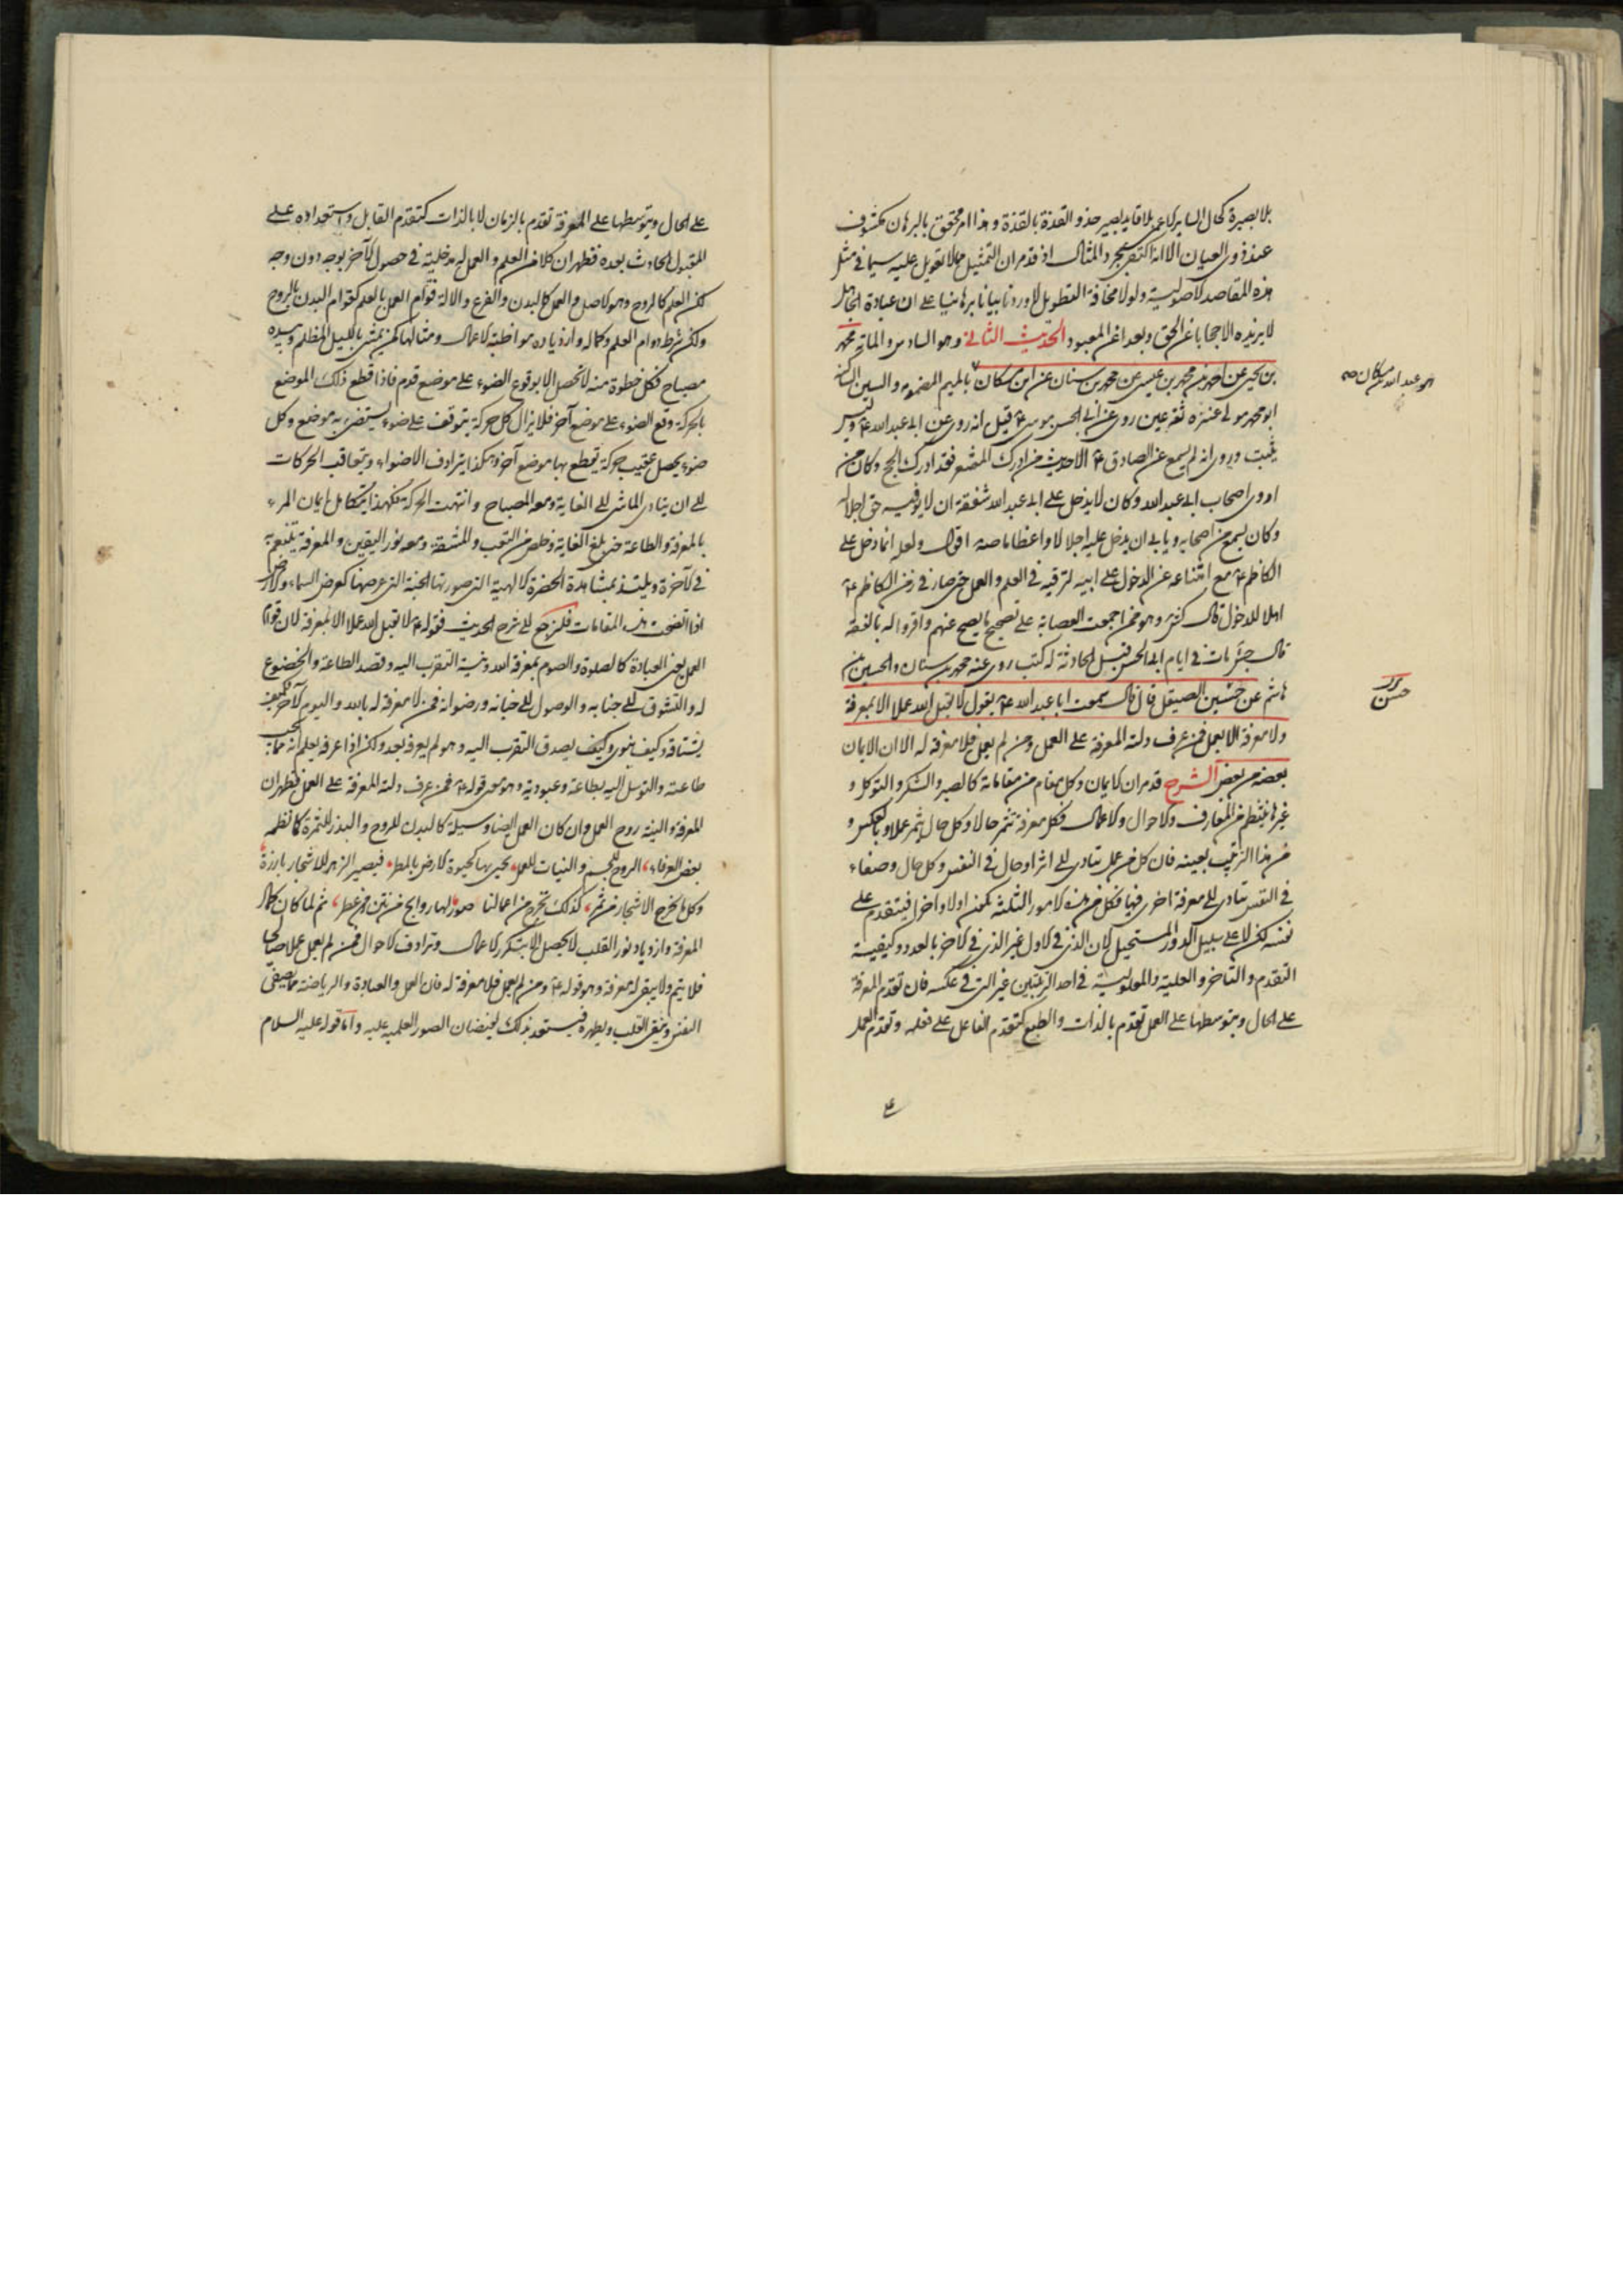 بلا بصيرة كحال السائر كالاعمى بلا قائد بصير حذو القذة بالقذة وهذا امر محقق بالبرهان مكشوف
عند ذوى العيان الا انه اكتفى بمجرد المثال اذ قد مر ان التمثيل مما لا تعويل عليه سيما فى مثل
هذه المقاصد الاصولية ولولا مخافة التطويل لاوردنا بيانا برهانيا على ان عبادة الجاهل
لا يزيده الا حجابا عن الحق وبعدا عن المعبود الحديث الثانى وهو السادس والمائة محمد
بن يحيى عن احمد بن محمد بن عيسى عن محمد بن سنان عن ابن مسكان بالميم المضموم والسين الساكنة
هو عبد الله بن مسكان صح
ابو محمد مولى عنزة ثقة عين روى عن ابى الحسن موسى ع قيل انه روى عن ابى عبد الله ع وليس
يثبت وروى انه لم يسمع عن الصادق ع الا حديث من ادرك المشعر فقد ادرك الحج وكان من
اروى اصحاب ابى عبد الله وكان لا يدخل على ابى عبد الله شفقة ان لا يوفيه حق اجلاله
وكان يسمع من اصحابه ويابى ان يدخل عليه اجلالا واعظاما صه اقول ولعله انما دخل على
الكاظم ع مع امتناعه عن الدخول على ابيه لترقيه فى العلم والعمل حتى صار فى زمن الكاظم ع
اهلا للدخول قال كش وهو ممن اجمعت العصابة على تصحيح ما يصح عنهم واقروا له بالفقه
قال جش مات فى ايام ابى الحسن قبل الحادثة له كتب روى عنه محمد بن سنان والحسين بن
هاشم عن حسين الصيقل قال قال سمعت ابا عبد الله ع يقول لا يقبل الله عملا الا بمعرفة
حسن
ولا معرفة الا بعمل فمن عرف دلته المعرفة على العمل ومن لم يعمل فلا معرفة له الا ان الايمان
بعضه من بعض الشرح قد مر ان الايمان وكل مقام من مقاماته كالصبر والشكر والتوكل و
غيرها ينتظم من المعارف والاحوال والاعمال فكل معرفة تثمر حالا وكل حال يثمر عملا وبالعكس و
من هذا الترتيب بعينه فان كل من عمل يتادى الى اثر او حال فى النفس وكل حال وصفاء
فى النفس يتادى الى معرفة اخرى فيها فكل من هذه الامور الثلثة يكون اولا واخرا فيتقدم على
نفسه لكن لا على سبيل الدور المستحيل لان الذى فى الاول غير الذى فى الاخر بالعدد وكيفية
التقدم والتاخر والعلية والمعلولية فى احد الترتيبين غير التى فى عكسه فان تقدم المعرفة
على الحال وبتوسطها على العمل تقدم بالذات والطبع كتقدم الفاعل على فعله وتقدم العمل
على الحال وبتوسطها على المعرفة تقدم بالزمان لا بالذات كتقدم القابل واستعداده على
المقبول الحادث بعده فظهر ان كلا من العلم والعمل له مدخلية فى حصول الآخر بوجه دون وجه
لكن العلم كالروح وهو الاصل والعمل كالبدن والفرع والالة قوام العمل بالعلم كقوام البدن بالروح
ولكن شرط دوام العلم وكماله وازدياده مواظبة الاعمال ومثالهما كمن يمشى بالليل المظلم وبيده
مصباح فكل خطوة منه لا تحصل الا بوقوع الضوء على موضع قدم فاذا قطع ذلك الموضع
بالحركة وقع الضوء على موضع آخر فلا يزال كل حركة يتوقف على ضوء يستضئ به موضع وكل
ضوء يحصل عقيب حركة يقطع بها موضع آخر وهكذا يترادف الاضواء ويتعاقب الحركات
الى ان يتادى الماشى الى الغاية ومعه المصباح وانتهت الحركة فهكذا يتكامل ايمان المرء
بالمعرفة والطاعة حتى بلغ الغاية وخلص من التعب والمشقة ومعه نور اليقين والمعرفة يتنعم به
فى الآخرة ويلتذ بمشاهدة الحضرة الالهية التى صورتها الجنة التى عرضها كعرض السماء والارض
اذا اتضحت هذه المقامات فلنرجع الى شرح الحديث فقوله ع لا يقبل الله عملا الا بمعرفة لان قوام
العمل يعنى العبادة كالصلوة والصوم بمعرفة الله ونية التقرب اليه وقصد الطاعة والخضوع
له والتشوق الى جنابه والوصول الى جنانه ورضوانه فمن لا معرفة له بالله واليوم الآخر فكيف
يشتاقه وكيف ينوى وكيف يصدق التقرب اليه وهو لم يعرفه بعد ولكن اذا عرفه يعلم انه مما يجب
طاعته والتوسل اليه بطاعة وعبودية وهو معنى قوله ع فمن عرف دلته المعرفة على العمل فظهر ان
المعرفة والنية روح العمل وان كان العمل ايضا وسيلة كالبدن للروح والبذر للثمرة كما نظمه
بعض العرفاء الروح للجسم والنيات للعمل يحيى بها كحيوة الارض بالمطر فيصير الزهر للاشجار بارزة
وكل ما يخرج الاشجار من ثمر كذلك تخرج من اعمالنا صور لها روايح من نتن ومن عطر ثم لما كان كمال
المعرفة وازدياد نور القلب لا يحصل الا بتكرر الاعمال وترادف الاحوال فمن لم يعمل عملا صالحا
فلا يتم ولا يبقى له معرفة وهو قوله ع ومن لم يعمل فلا معرفة له فان العمل والعبادة والرياضة مما يصفى
النفس وينقى القلب ويطهره فيستعد بذلك لفيضان الصور العلمية عليه واما قوله عليه السلام